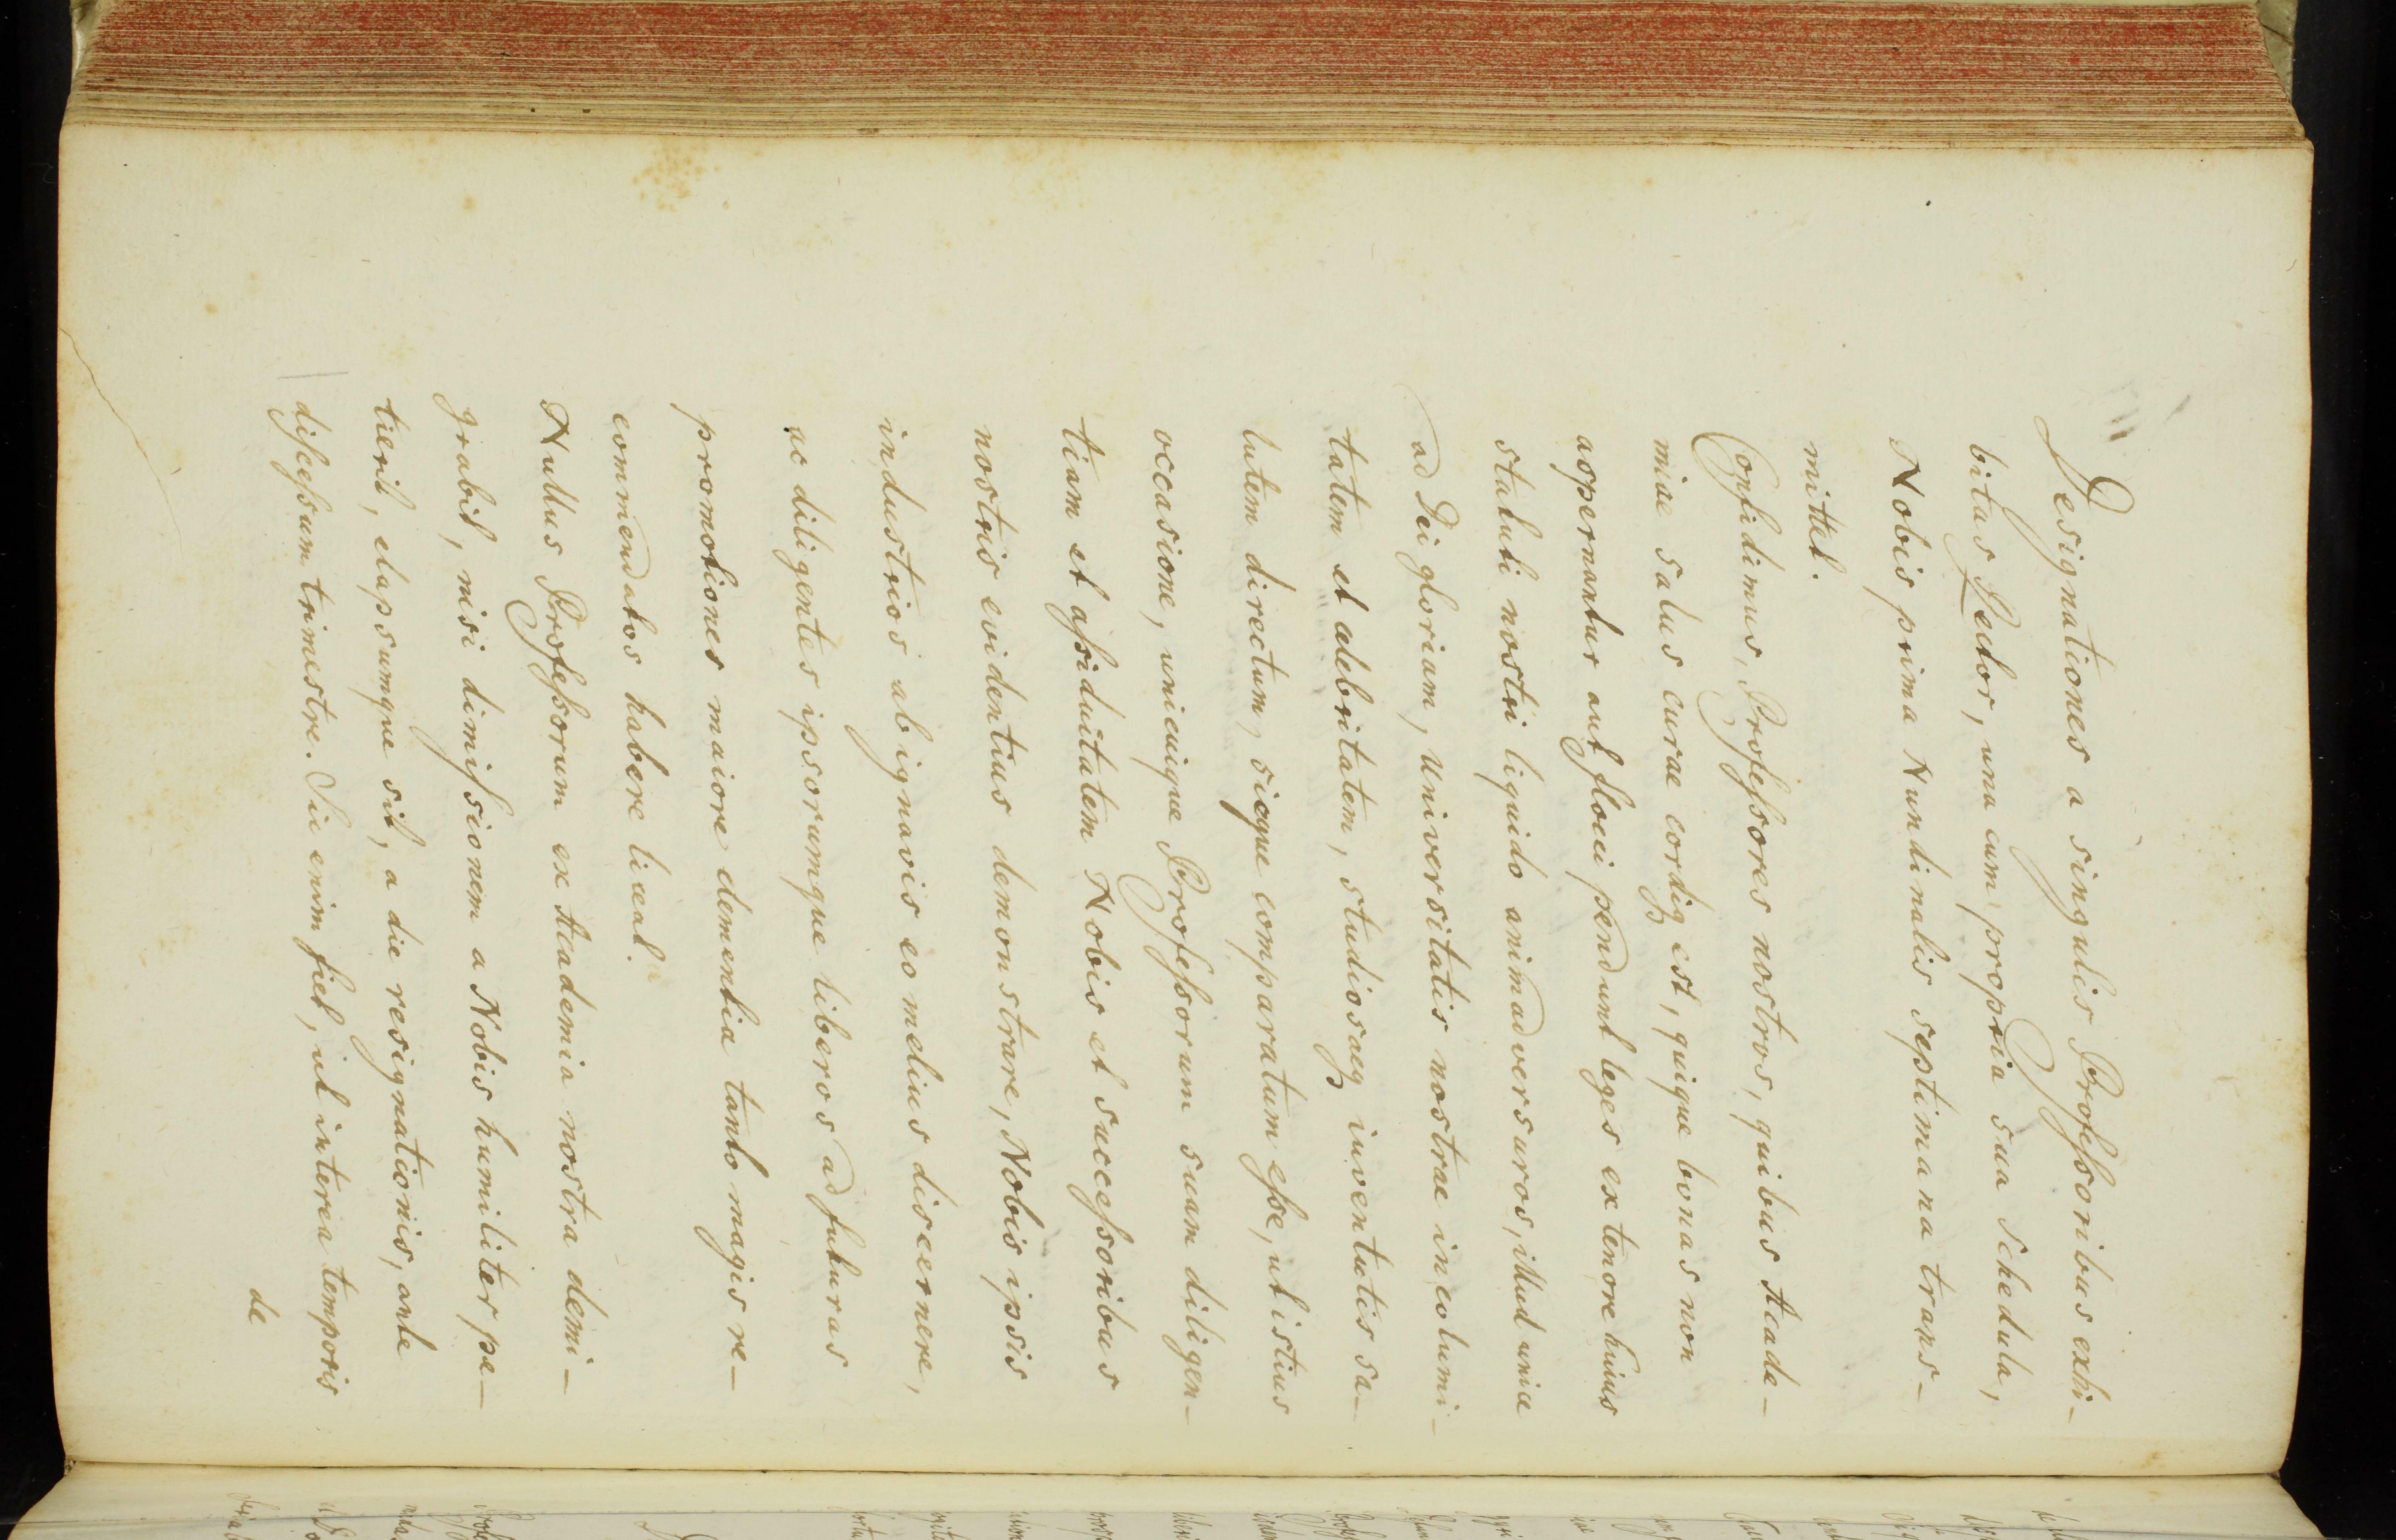 Designationes a singulis Profeſsoribus exhi-
bitas Rector, una cum propria sua schedula,
Nobis prima Nundinalis septimana trans-
mittet.
Confidimus, Profeſsores nostros, quibus Acade-
miae salus curae cordiq est, quique bonas non
aspernantur aut flocci pendunt leges ex tenore huius
statuti nostri liquido animadversuros, illud unice
ad Dei gloriam, Universitatis nostrae incolumi-
tatem et celebritatem, studiosaeq iuventutis sa-
lutem directum, sicque comparatum eſse, ut istius
occasione, unicuique Profeſsorum suam diligen-
tiam et aſsiduitatem Nobis et succeſsoribus
nostris evidentius demonstrare, Nobis ipsis
industrios ab ignavis eo melius discernere,
ac diligentes ipsorumque liberos ad futuras
promotiones maiore clementia tanto magis re-
commendatos habere liceat.
Nullus Profeſsorum ex Academia nostra demi-
grabit, nisi dimiſsionem a Nobis humiliter pe-
tierit, elapsumque sit, a die resignationis, ante
diſceſsum trimestre. Sic enim fiet, ut interea temporis
de